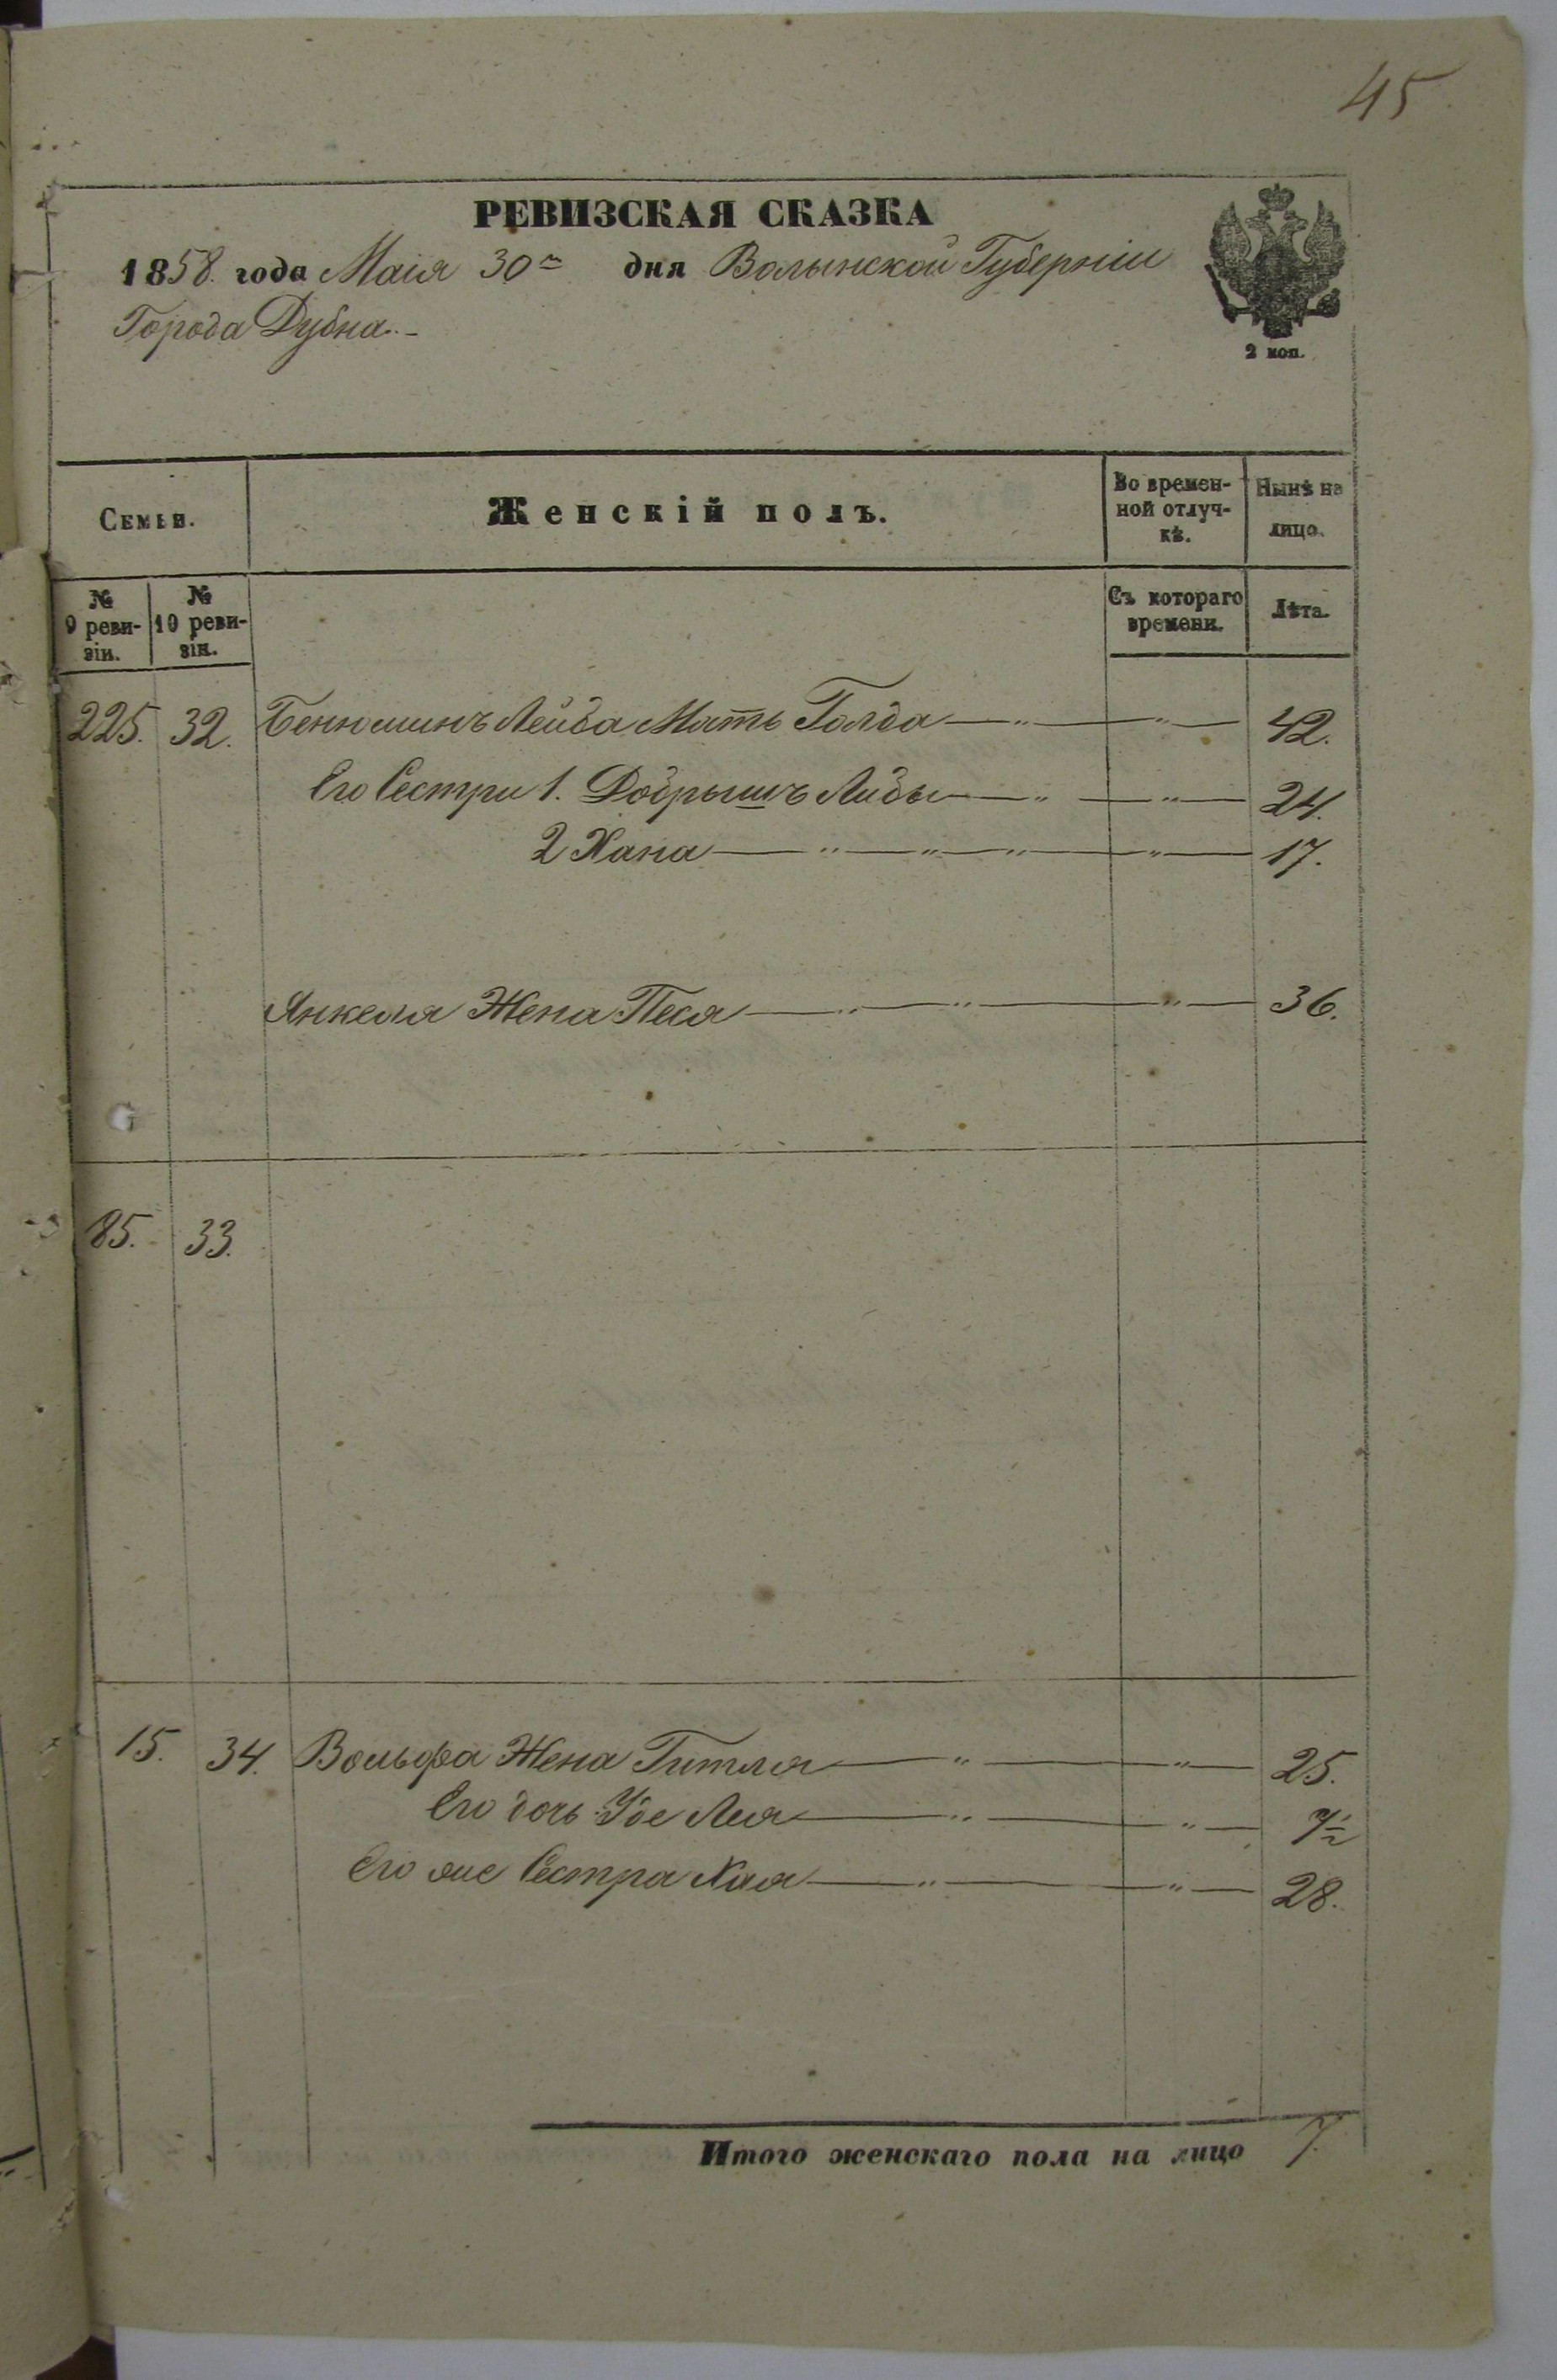 45
РЕВИЗСКАЯ СКАЗКА
1858. года Маія 30го дня Волынской Губерніи
Города Дубна.
2 коп.
Семьи.
Женскій полъ.
Во времен-
ной отлуч-
кѣ.
Нынѣ на
лицо.
№
9 реви-
зіи.
№
10 реви-
зіи.
Съ котораго
времени.
Лѣта.
225. 32. Бенюминъ Лейба Мать Голда — " — " — 42.
Его Сестри 1. Добрышъ Либы — " — " — 24.
2 Хана — " — " — " — " — 17.
Янкеля Жена Песя — " — " — " — 36.
85. 33.
15. 34. Вольфа Жена Гитля — " — " — 25.
Его дочь Уде Лея — " — " — 7½
Его же Сестра Хая — " — " — 28.
Итого женскаго пола на лицо 7.